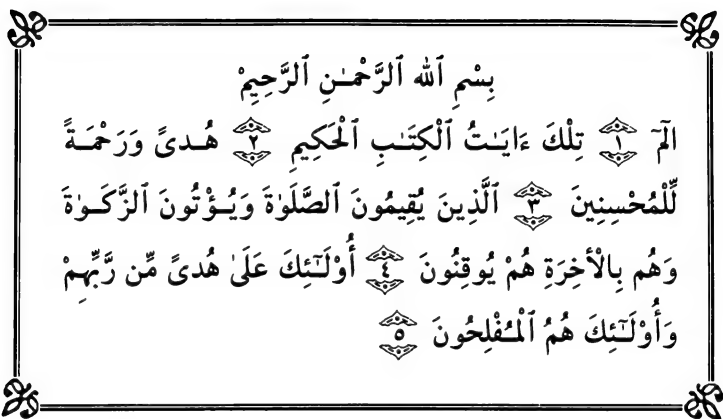 بِسْمِ ٱللَّهِ ٱلرَّحْمَـٰنِ ٱلرَّحِيمِ
الٓمٓ ١ تِلْكَ ءَايَـٰتُ ٱلْكِتَـٰبِ ٱلْحَكِيمِ ٢ هُـدىً وَرَحْمَـةً
لِّلْمُحْسِنِينَ ٣ ٱلَّذِينَ يُقِيمُونَ ٱلصَّلَوٰةَ وَيُـؤْتُونَ ٱلزَّكَـوٰةَ
وَهُم بِالْأَخِرَةِ هُمْ يُوقِنُونَ ٤ أُوْلَـٰٓئِكَ عَلَىٰ هُدىً مِّن رَّبِّهِمْ
وَأُوْلَـٰٓئِكَ هُمُ ٱلْمُـفْلِحُونَ ٥